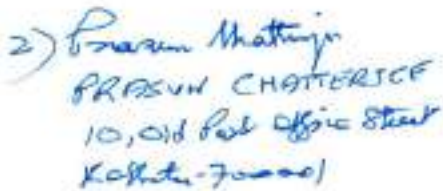 2) Prasun Chatterjee
PRASUN CHATTERJEE
10, Old Post Office Street
Kolkata-700001